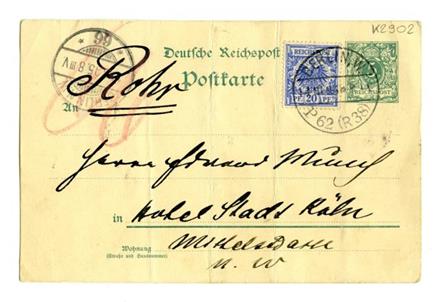 K2902
Deutsche Reichspost
Postkarte
Rohr
An
REICHSPOST
20 PF
P 62 (R 38)
Herrn Edvard Munch
in Hotel Stadt Köln
Mittelstrasse
N. W
Wohnung
(Straße und Hausnummer)